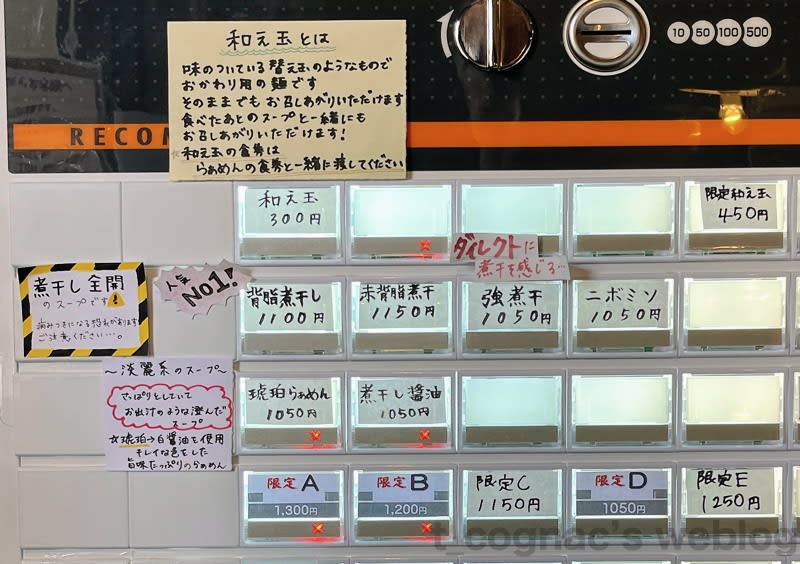 和え玉とは
味のついている替え玉のようなもので
おかわり用の麺です
そのままでもお召しあがりいただけます
食べたあとのスープと一緒にも
お召しあがりいただけます!
☆和え玉の食券は
らぁめんの食券と一緒に渡してください
10 50 100 500
RECOM
和え玉
300円
限定和え玉
450円
ダイレクトに
煮干を感じる…
煮干し全開
のスープです!
病みつきになる恐れがあります
ご注意ください…。
人気
No1!
背脂煮干し
1100円
赤背脂煮干
1150円
強煮干
1050円
ニボミソ
1050円
~淡麗系のスープ~
さっぱりとしていて
お出汁のような澄んだ
スープ
☆琥珀→白醤油を使用
キレイな色をした
旨味たっぷりのらぁめん
琥珀らぁめん
1050円
煮干し醤油
1050円
限定A
1,300円
限定B
1,200円
限定C
1150円
限定D
1050円
限定E
1250円
t_cognac's weblog